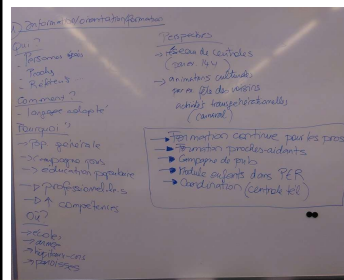 1) Information/orientation/formation
Qui?
- Personnes
- Proches
- Réseau
Comment?
- langage adapté
Pourquoi?
-> pop. générale
-> campagne
-> éducation populaire
-> professionnel.le.s
-> ↑ compétences
Où?
-> écoles
-> paroisses
Perspectives
-> réseau de centrales
(numéro 144)
-> animations culturelles
fête des voisins
activités transgénérationnelles
(carnaval)
-> Formation continue pour les pros
-> Formation proches-aidants
-> Campagne de pub
-> Module enfants dans PER
-> Coordination (centrale tél)